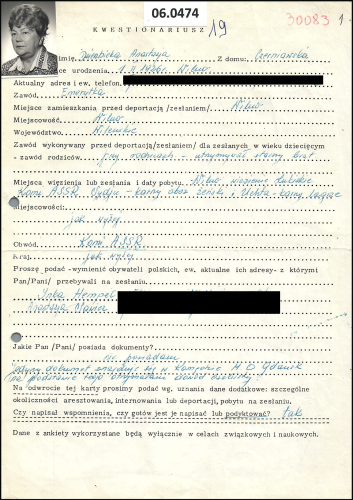 06.0474
KWESTIONARIUSZ 19
30083 1
imię, Anastazja Z domu: Czerniawska
sce urodzenia. Wilno
Aktualny adres i ew. telefon
Zawód Emerytka
Miejsce zamieszkania przed deportacją/zesłaniem/ Wilno
Miejscowość Wilno
Województwo Wileńskie
Zawód wykonywany przed deportacją/zesłaniem/ dla zesłanych w wieku dziecięcym
- zawód rodziców- przy rodzicach - utrzymywał starszy brat
Miejsca więzienia lub zesłania i daty pobytu. Wilno więzienie Łukiskie
Komi ASSR - karny obóz żeński i Uchta - karny łagier
Miejscowości:
jak wyżej
Obwód Komi ASSR
Kraj jak wyżej
Proszę podać -wymienić obywateli polskich, ew. aktualne ich adresy- z którymi
Pan/Pani/ przebywali na zesłaniu.
Irka Hempel
Jakie Pan /Pani/ posiada dokumenty?
nie posiadam
Jedyny dokument znajduje się w M O Gdańsk
na podstawie tego otrzymałam dowód osobisty
Na odwrocie tej karty prosimy podać wg. uznania dane dodatkowe: szczególne
okoliczności aresztowania, internowania lub deportacji, pobytu na zesłaniu.
Czy napisał wspomnienia, czy gotów jest je napisać lub podyktować? tak
Dane z ankiety wykorzystane będą wyłącznie w celach związkowych i naukowych.